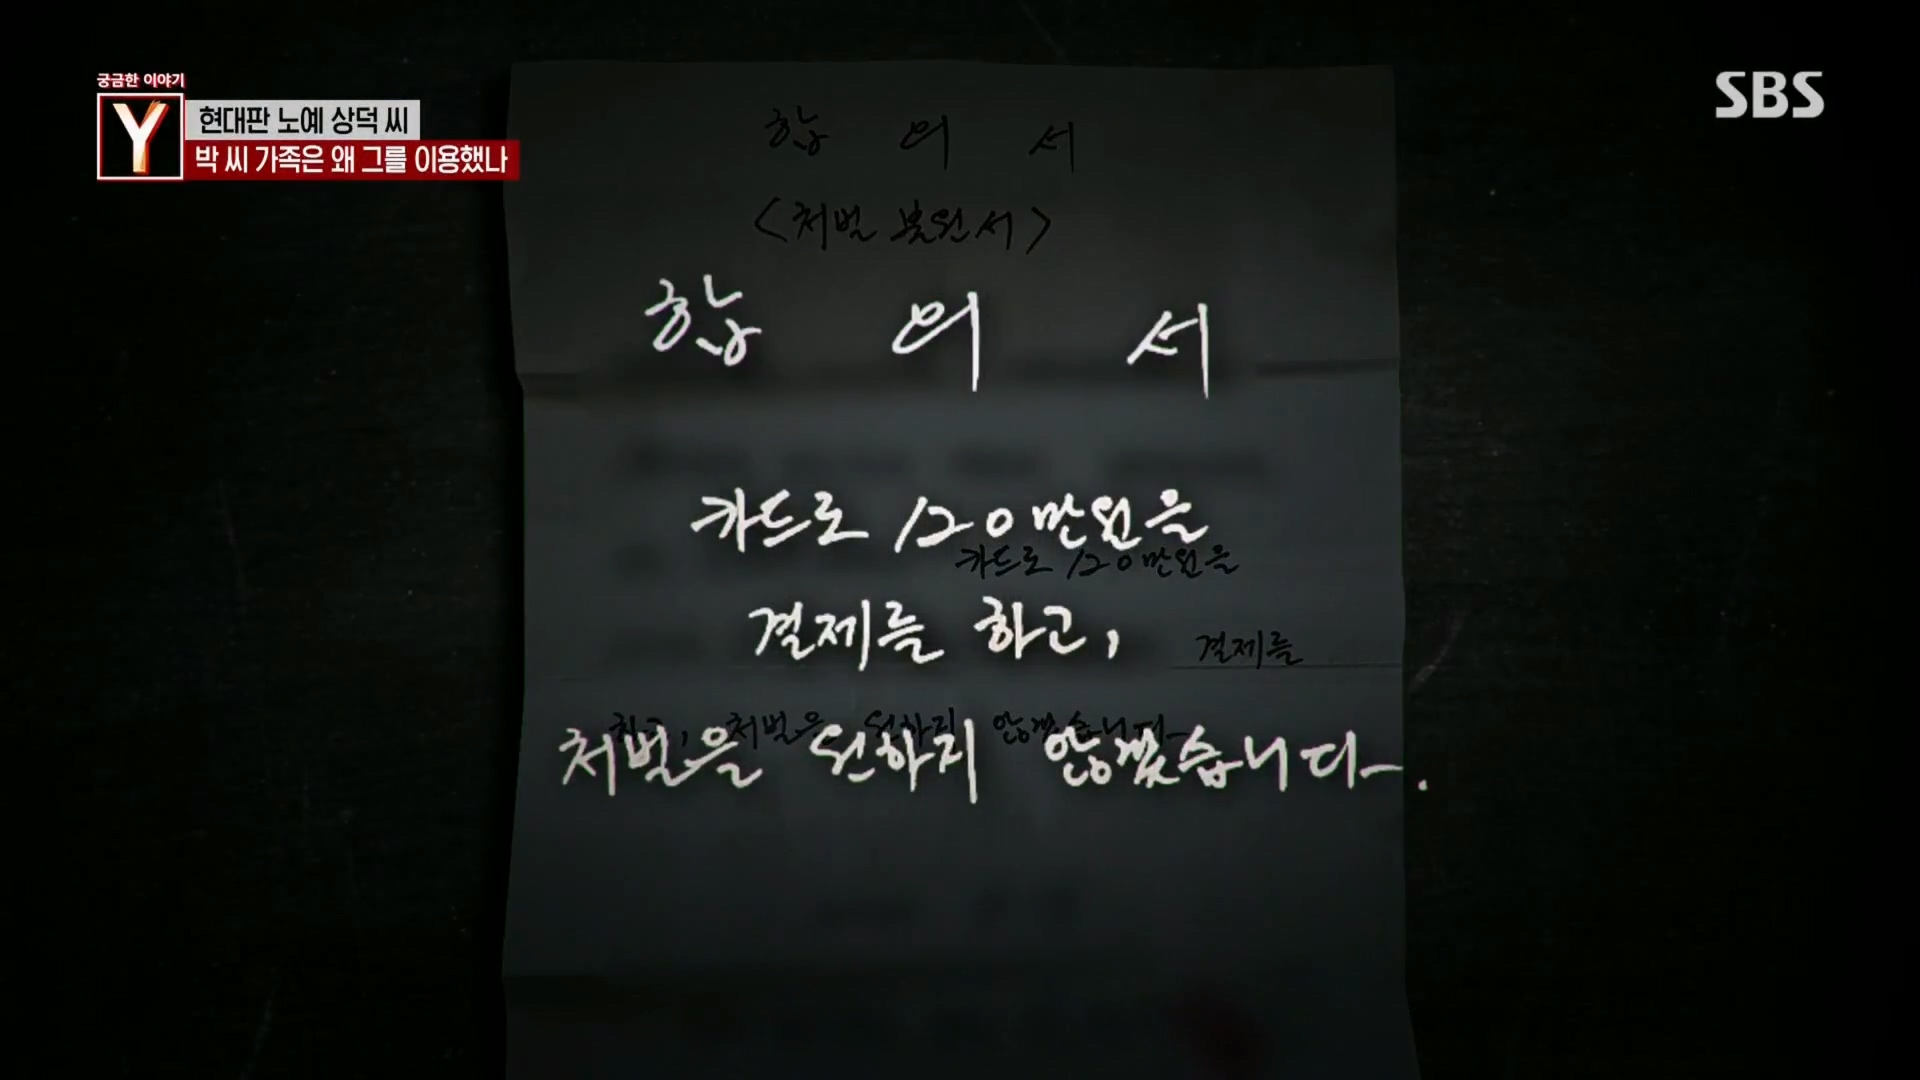 궁금한 이야기
Y
현대판 노예 상덕 씨
박 씨 가족은 왜 그를 이용했나
SBS
합 의 서
<처벌 불원서>
합 의 서
카드로 120만원을
카드로 120만원을
결제를 하고,
결제를
하고, 처벌을 원하지 않겠습니다.
처벌을 원하지 않겠습니다.